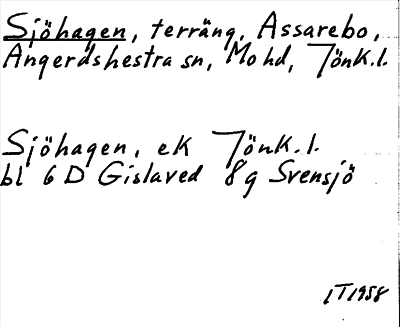 Sjöhagen, terräng, Assarebo,
Angerdshestra sn, Mo hd, Jönk.l.
Sjöhagen, ek Jönk.l.
bl 6 D Gislaved 8g Svensjö
IT1958